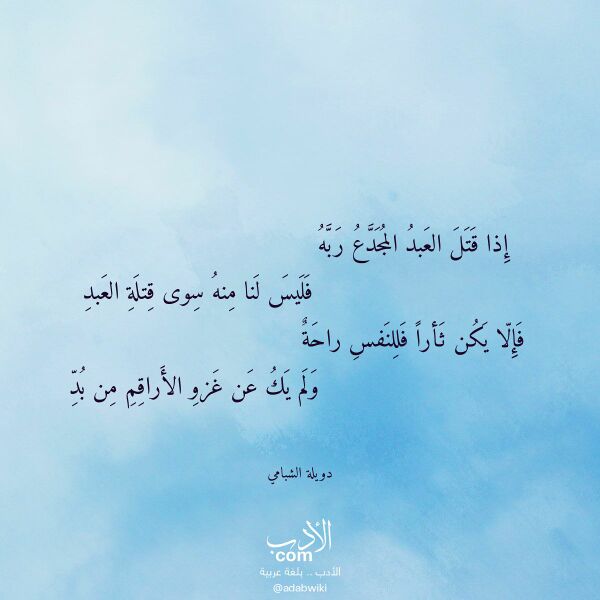 إِذا قَتَلَ العَبدُ المُجَدَّعُ رَبَّهُ
فَلَيسَ لَنا مِنهُ سِوى قِتلَةِ العَبدِ
فَإِلّا يَكُن ثَأراً فَلِلنَفسِ راحَةٌ
وَلَم يَكُ عَن غَزوِ الأَراقِمِ مِن بُدِّ
دويلة الشبامي
الأدب
com
الأدب .. بلغة عربية
@adabwiki